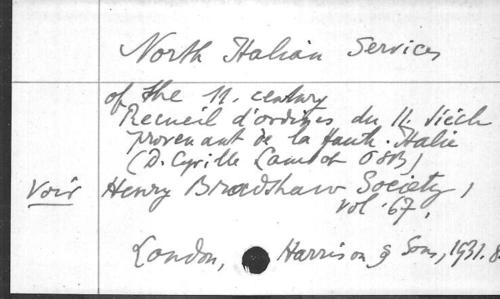 North Italian Services
of the 11. century
Recueil d'ordines du 11. siècle
provenant de la Haute-Italie
(D. Cyrille Lambot OSB)
Voir Henry Bradshaw Society,
vol. 67.
London, Harrison & Sons, 1931. 8